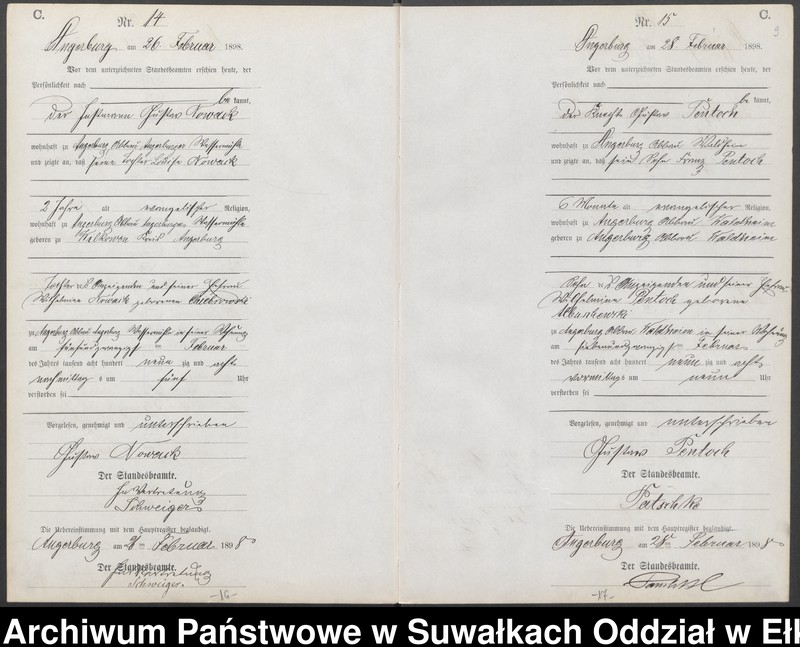 C.
Nr. 14
Angerburg am 26 Februar 1898.
Vor dem unterzeichneten Standesbeamten erschien heute, der
Persönlichkeit nach
be kannt,
der Gustav Nowack
wohnhaft zu Angerburg Abbau Angerburger Wassermühle
und zeigte an, daß seine Tochter Louise Nowack
2 Jahre alt evangelischer Religion,
wohnhaft zu Angerburg Abbau Angerburger Wassermühle
geboren zu Kreis Angerburg
Tochter des Anzeigenden und seiner Ehefrau
Wilhelmine Nowack geborenen
zu Angerburg Abbau Angerburg Wassermühle in seiner Wohnung
am fünfundzwanzigsten Februar
des Jahres tausend acht hundert neun zig und acht
nachmittag s um fünf Uhr
verstorben sei
Vorgelesen, genehmigt und unterschrieben
Gustav Nowack
Der Standesbeamte.
In Vertretung
Schweiger
Die Uebereinstimmung mit dem Hauptregister beglaubigt.
Angerburg am 26 ten Februar 1898
Der Standesbeamte.
In Vertretung
Schweiger.
-16-
C.
Nr. 15
Angerburg am 28 Februar 1898.
Vor dem unterzeichneten Standesbeamten erschien heute, der
Persönlichkeit nach
be kannt,
der Knecht Gustav Pentoch
wohnhaft zu Angerburg Abbau Waldheim
und zeigte an, daß sein Sohn Franz Pentoch
6 Monate alt evangelischer Religion,
wohnhaft zu Angerburg Abbau Waldheim
geboren zu Angerburg Abbau Waldheim
Sohn des Anzeigenden und seiner Ehefrau
Wilhelmine Pentoch geborene
zu Angerburg Abbau Waldheim in seiner Wohnung
am siebenundzwanzigsten Februar
des Jahres tausend acht hundert neun zig und acht
vormittag s um neun Uhr
verstorben sei
Vorgelesen, genehmigt und unterschrieben
Gustav Pentoch
Der Standesbeamte.
Patschke
Die Uebereinstimmung mit dem Hauptregister beglaubigt.
Angerburg am 28 ten Februar 1898
Der Standesbeamte.
-17-
Archiwum Państwowe w Suwałkach Oddział w Ełk